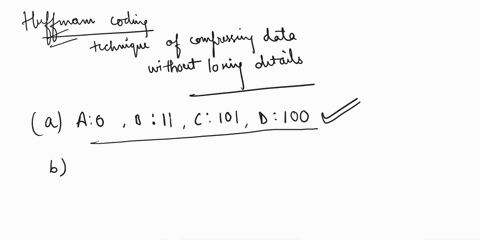 Huffmann coding
technique of compressing data
without losing details
(a) A:0 , B:11 , C:101 , D:100
b)